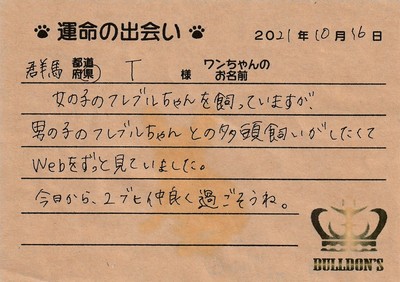 運命の出会い 2021年10月16日
群馬 都道府県 T 様 ワンちゃんのお名前
女の子のフレブルちゃんを飼っていますが、
男の子のフレブルちゃんとの多頭飼いがしたくて
Webをずっと見ていました。
今日から、2ブヒ仲良く過ごそうね。
BULLDON'S